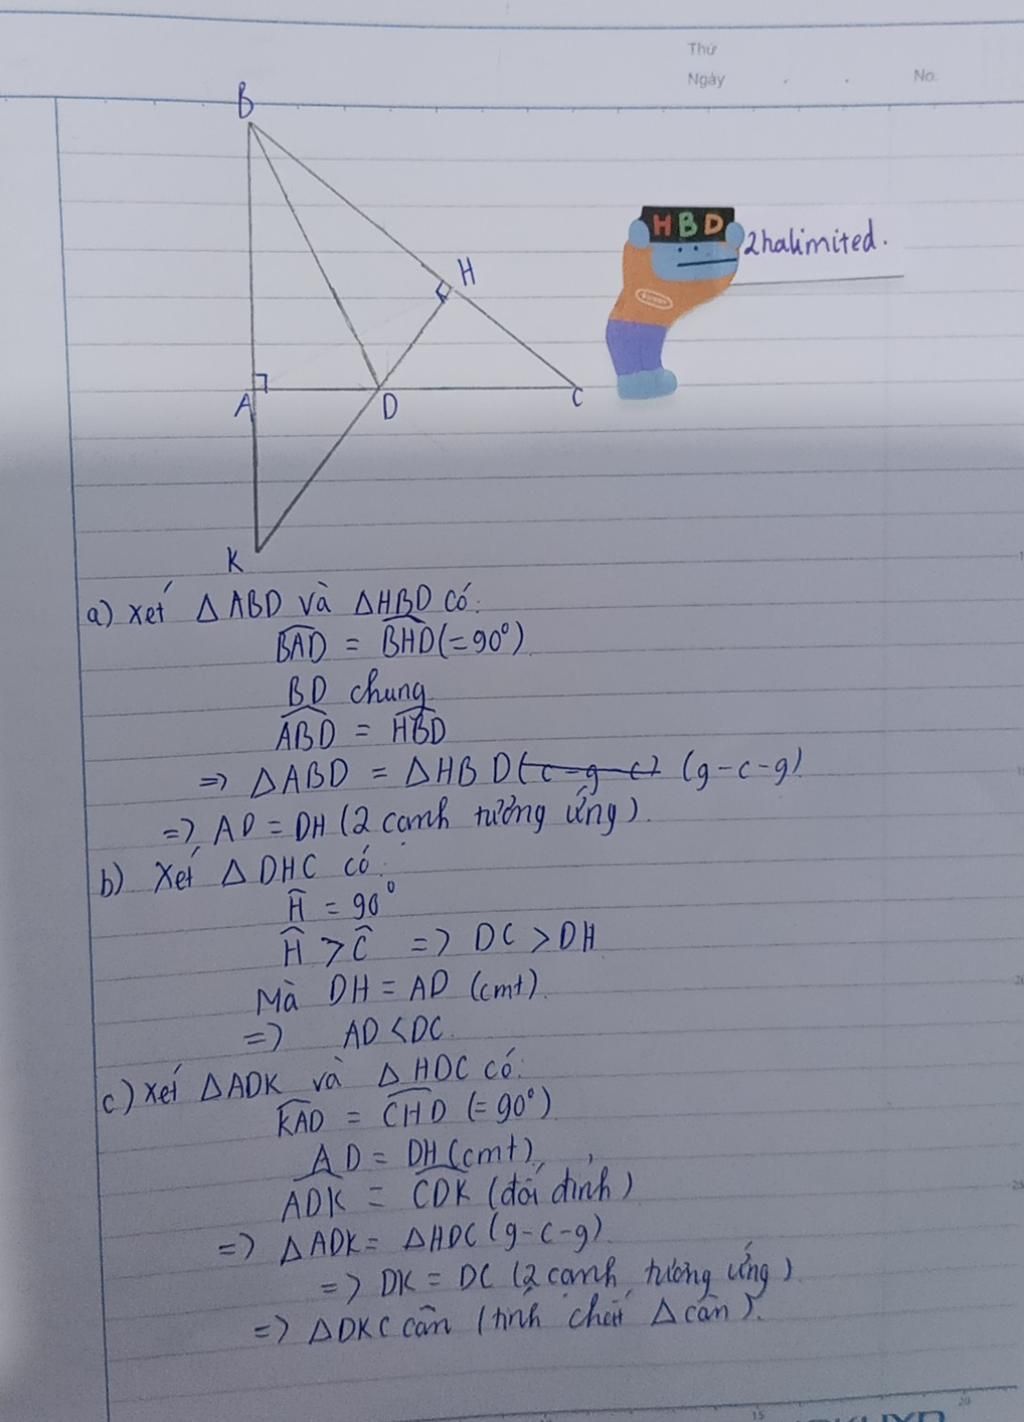 Thứ
Ngày . . No.
B
H B D
2halimited.
H
A D C
K
a) Xét △ABD và △HBD có:
BAD = BHD (= 90°)
BD chung
ABD = HBD
=> △ABD = △HBD (c-g-c) (g-c-g)
=> AD = DH (2 cạnh tương ứng).
b) Xét △DHC có:
Ĥ = 90°
Ĥ > Ĉ => DC > DH
Mà DH = AD (cmt).
=> AD < DC.
c) Xét △ADK và △HDC có:
KAD = CHD (= 90°)
AD = DH (cmt)
ADK = CDK (đối đỉnh)
=> △ADK = △HDC (g-c-g)
=> DK = DC (2 cạnh tương ứng)
=> △DKC cân (tính chất △ cân).
15 20